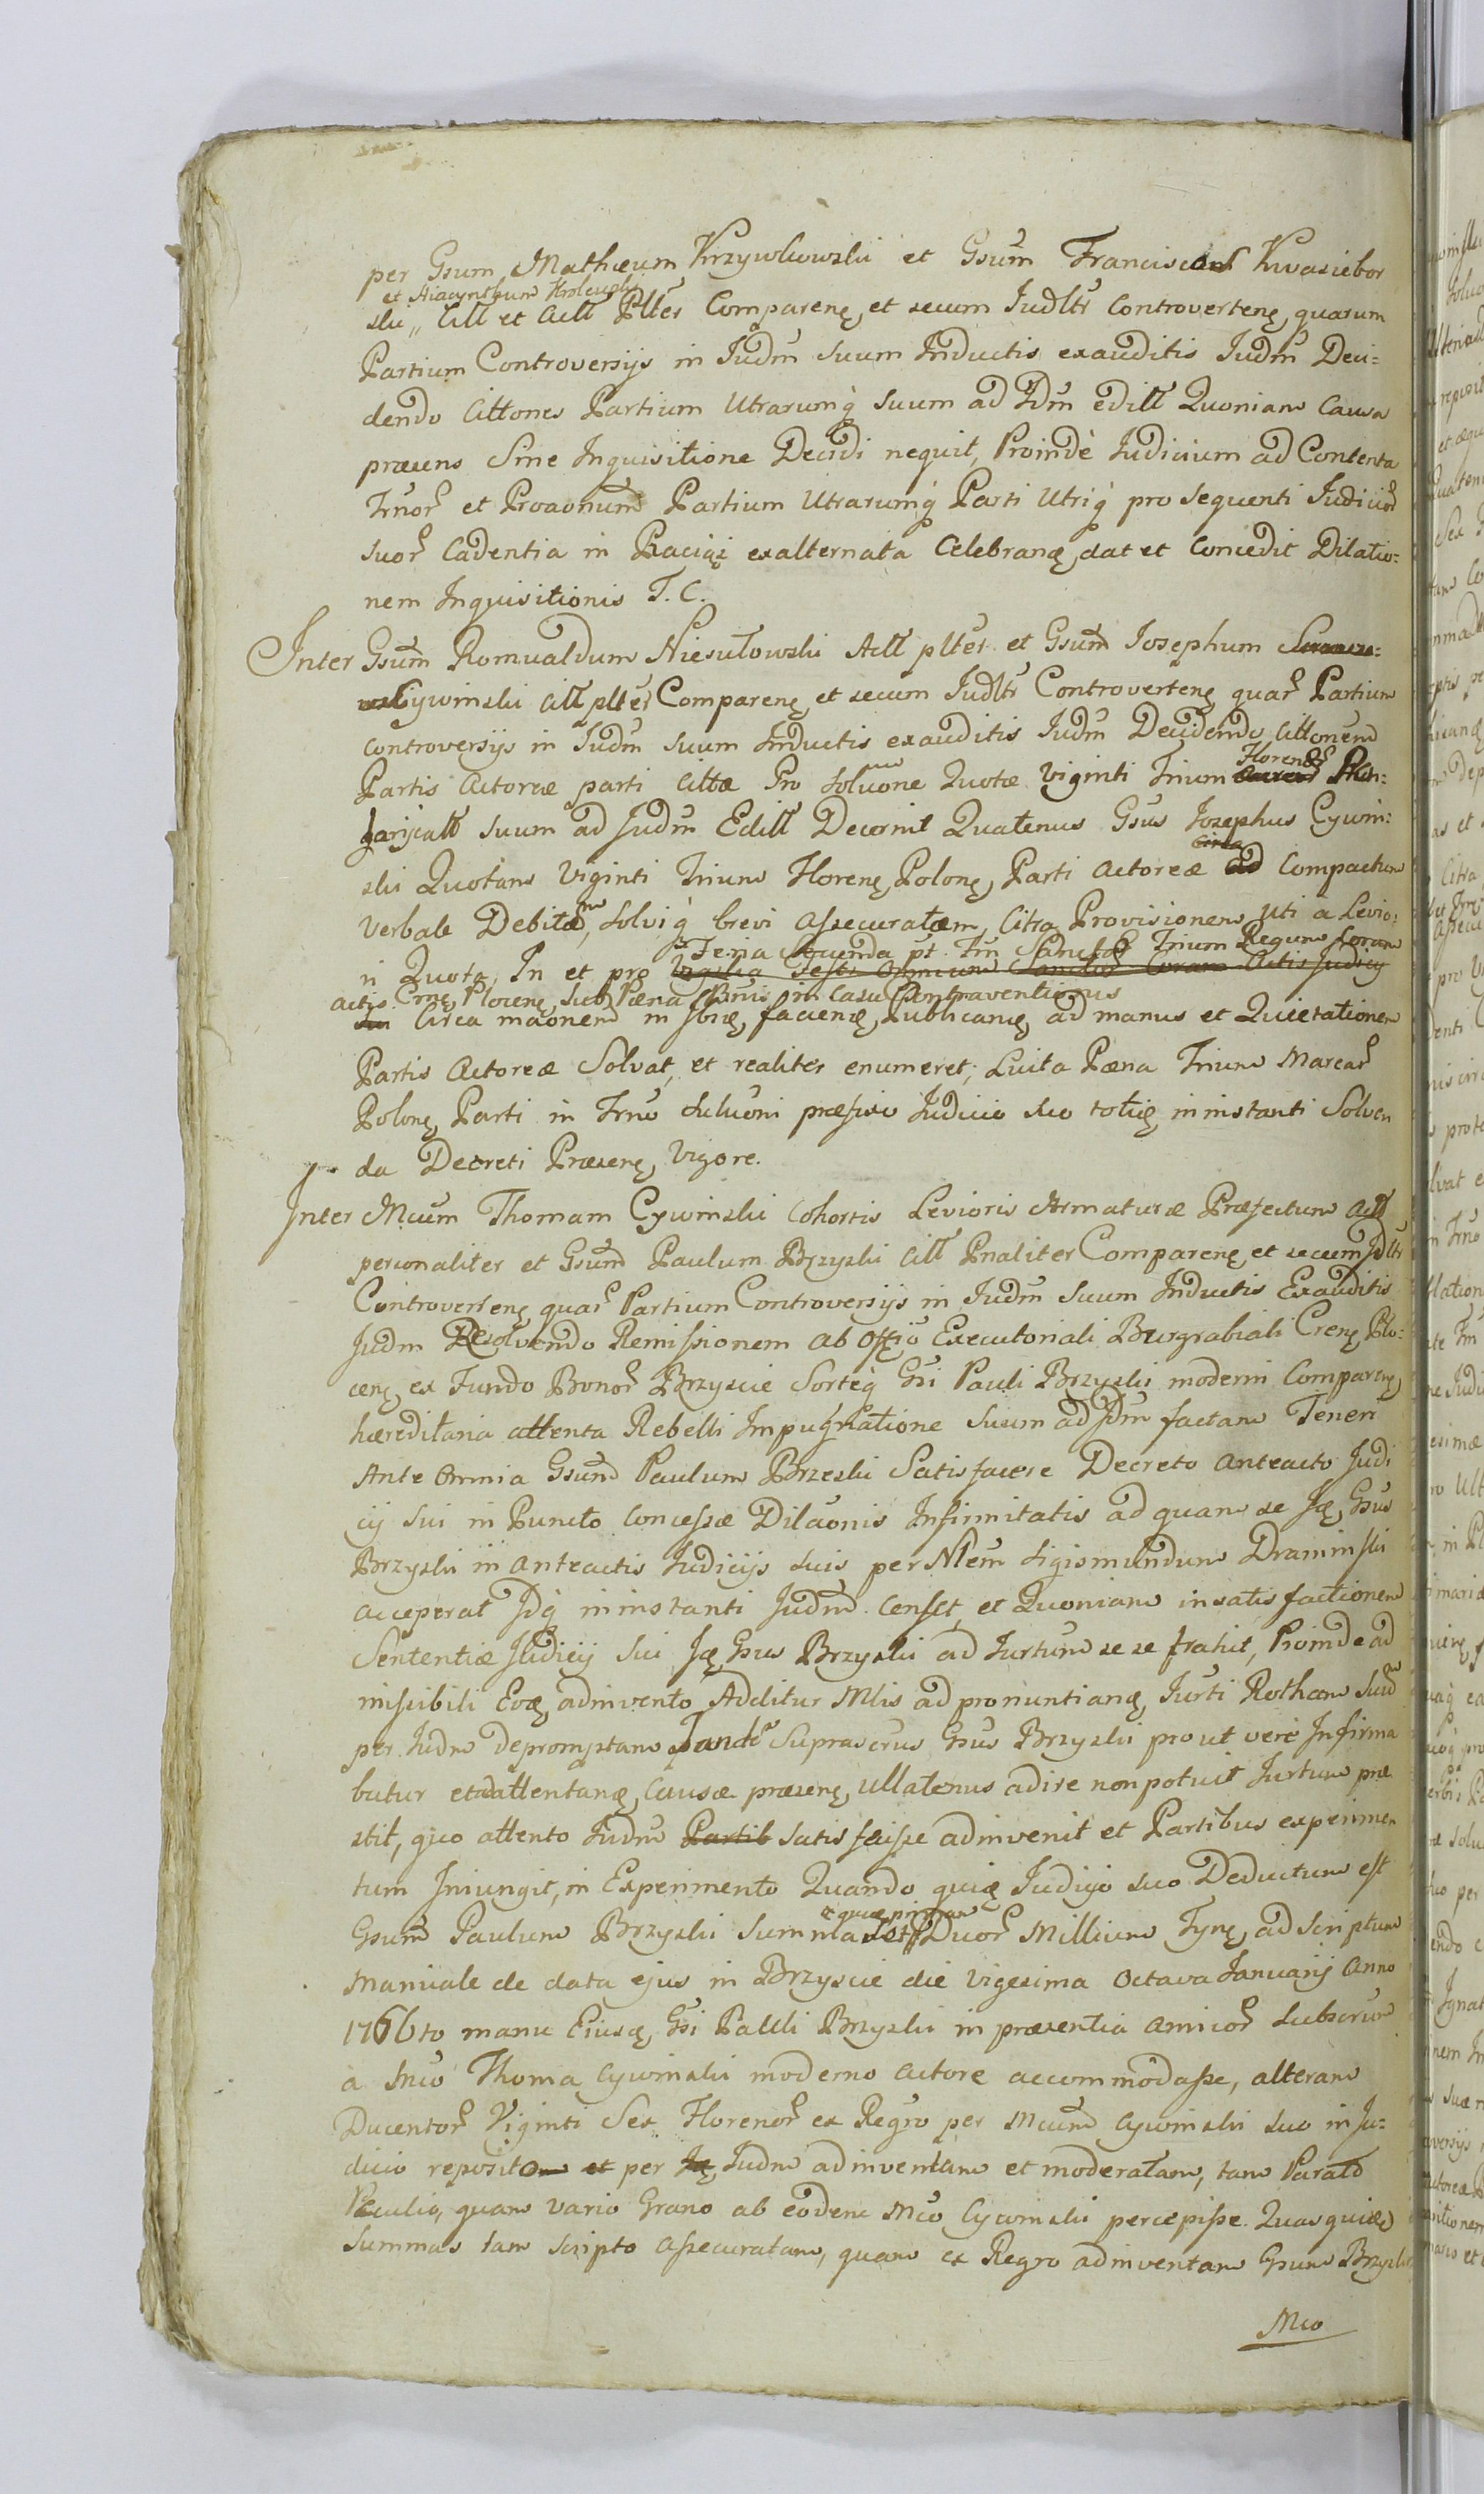 per Gsum Mathæum Krzywkowski et Gsum Franciscum Kwasiebor
et Hiacynthum
ski, Citt et Actt Plter Comparenę, et secum Judltr Controvertenę, quarum
Partium Controversijs in Judm suum Inductis exauditis Judm Deci=
dendo Cittones Partium Utrarumq̃ suum ad Jdm editt Quoniam Causa
præsens Sine Inquisitione Decidi nequit, Proindè Judicium ad Contenta
Trnor et Proaonum Partium Utrarumq̃ Parti Utriq̃ pro sequenti Judicior
suor Cadentia in Raciąż exalternata Celebranę, dat et Concedit Dilatio=
nem Inquisitionis T. C.
Inter Gsum Romualdum Niesułowski Actt plter et Gsum Josephum
Cywinski Citt plter Comparenę, et secum Judltr Controvertenę quar Partium
controversijs in Judm suum Inductis exauditis Judm Decidendo Cittonem
Florenor
Partis Actoreæ parti Cittæ Pro soluone Quotæ Viginti Trium
suum ad Judm Editt Decernit Quatenus Gsus Josephus Cywin=
Circa
ski Quotam Viginti Trium Florenę, Polonę, Parti Actoreæ ad Compactum
Verbale Debitam, solviq̃ brevi assecuratam, Citra Provisionem uti a Levio
Feria Secunda pt Fm Sanctor Trium Regum Coram
ri Quota, In et pro Vigilia Festi Omnium Sanctor Coram Actis Judicij
actis Crnę, Plocenę, sub Pœna Bnis in Casu Contraventionis
Circa maonem in Jbię, facienę, Publicanię, ad manus et Quietationem
Partis Actoreæ Solvat, et realiter enumeret; Luita Pœna Trium Marcar
Polonę, Parti in Trno soluoni præfixo Judicio suo totię, in instanti Solven
da Decreti Præsenę, Vigore.
Inter Mcum Thomam Cywinski Cohortis Levioris Armaturæ Præfectum Actt
personaliter et Gsum Paulum Brzyski Citt Pnaliter Comparenę, et secum Jdltr
Controvertenę, quar Partium Controversijs in Judm suum Inductis Exauditis
Judm Resolvendo Remissionem ab Offio Executoriali Burgrabiali Crenę, Plo=
cenę, ex Fundo Bonor Brzyscie Sorteq̃ Gsi Pauli Brzyski moderni Comparenę,
hæreditaria attenta Rebelli Impugnatione suum ad Jdm factam Teneri
Ante Omnia Gsum Paulum Brzeski Satisfacere Decreto anteacto Judi
cij sui in Puncto Concessæ Dilaonis Infirmitatis ad quam se Ję, Gsus
Brzyski in anteactis Judicijs suis per Nlem Sigismundum Draminski
acceperat Jdq̃ in instanti Judm Censet, et Quoniam in satisfactionem
Sententiæ Judicij sui Ję, Gsus Brzyski ad Jurtum se se trahit, Proinde ad
missibili Eoę, adinvento, Additur Mlis ad pronuntianę, Jurti Rotham suum
per Judm depromptam Tande Suprascrus Gsus Brzyski prout verè Infirma
batur et ad attentanę, Causæ præsenę, ullatenus adire non potuit Jurtum præ
stit, quo attento Judm Partib satisfecisse adinvenit et Partibus experimen
tum Iniungit, in Experimento Quando quię Judicio suo Deductum est
Gsum Paulum Brzyski Summam Duor Millium Tynę, ad Scriptum
manuale de data ejus in Brzyscie die Vigesima Octava Januarij Anno
1766to manu Eiusę, Gsi Pauli Brzyski in præsentia amicor Subscrum
à Mco Thoma Cywinski moderno Actore accommodasse, alteram
Ducentor Viginti Sex Florenor ex Regro per Mcum Cywinski suo in Ju=
dicio reposito et per Ję, Judm adinventam et moderatam, tam Parato
Peculio, quam vario Grano ab eodem Mco Cywinski percepisse. Quas quię
Summas tam Scripto Assecuratam, quam ex Regro adinventam Gsum Brzyski
Mco